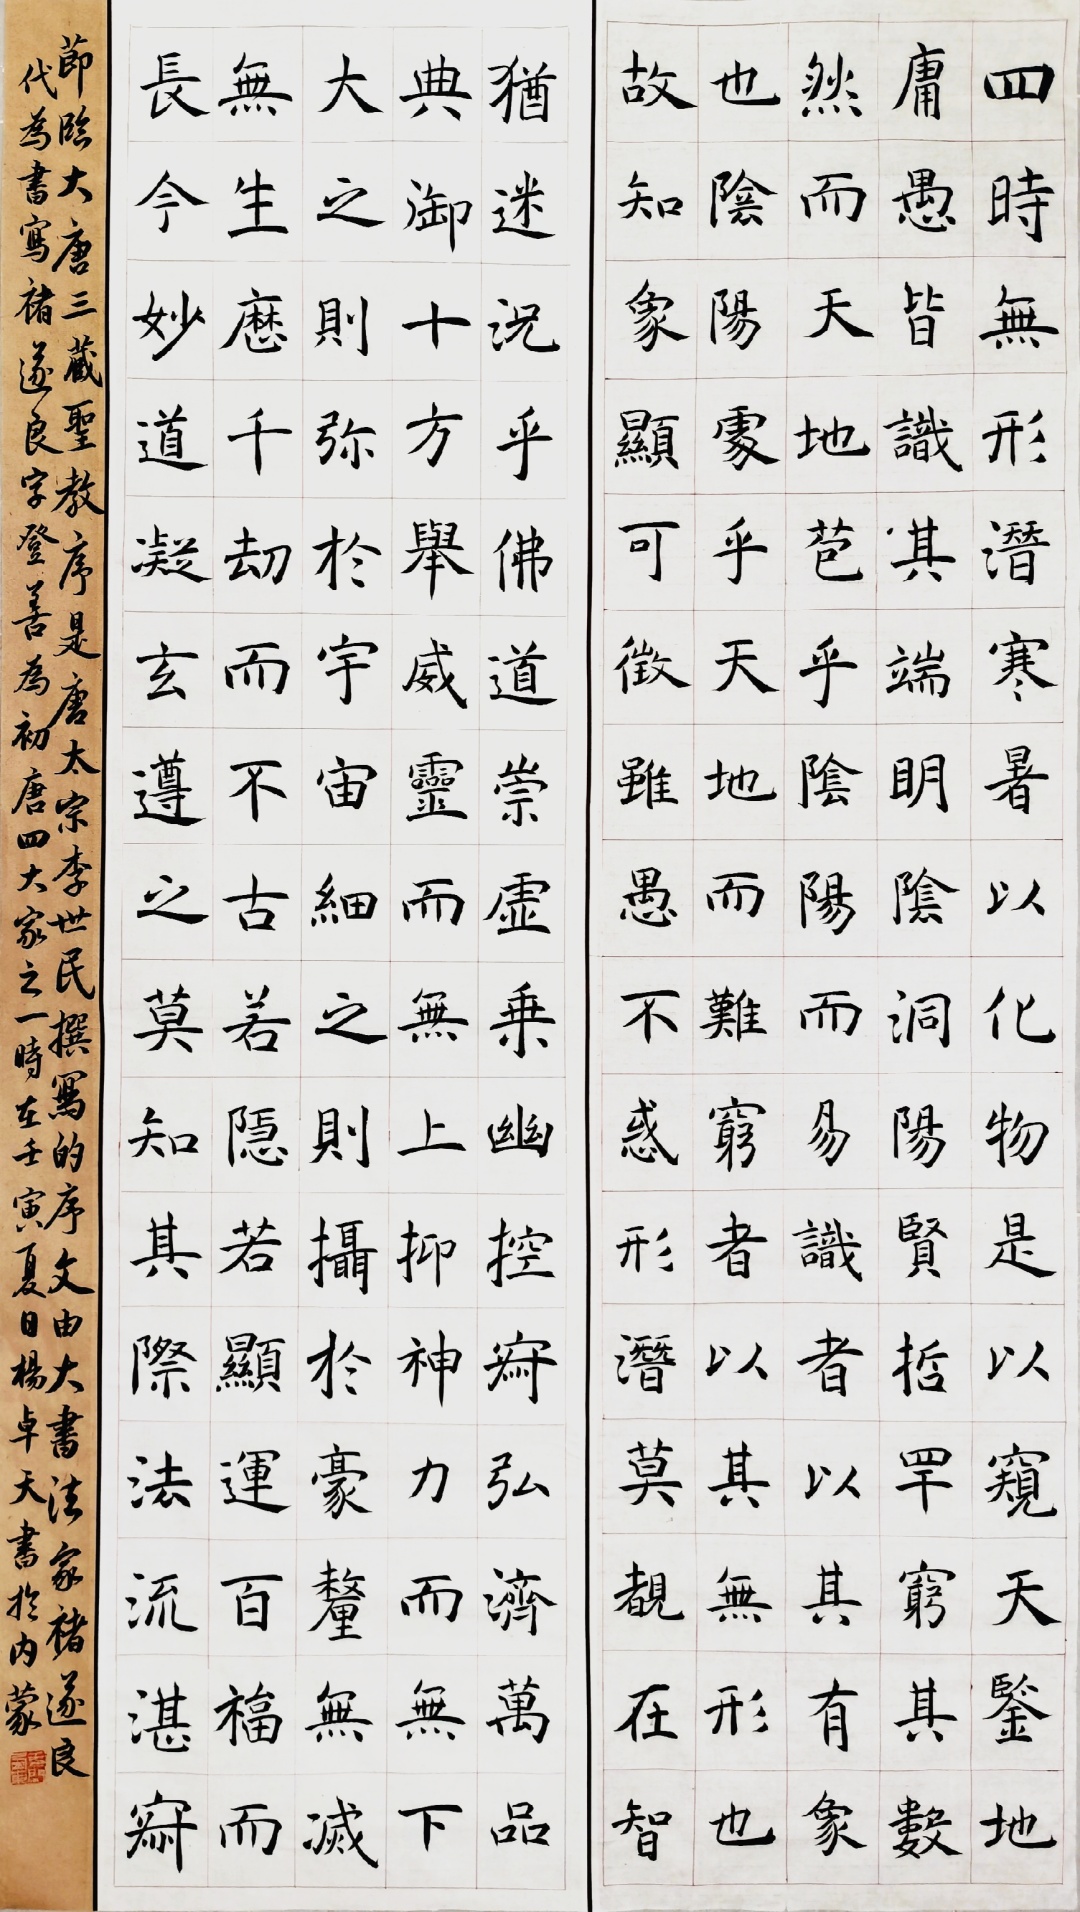 四時無形潛寒暑以化物是以窺天鍳地
庸愚皆識其端明陰洞陽賢哲罕窮其數
然而天地苞乎陰陽而易識者以其有象
也陰陽處乎天地而難窮者以其無形也
故知象顯可徵雖愚不惑形潛莫覩在智
猶迷况乎佛道崇虛乗幽控寂弘濟萬品
典御十方舉威靈而無上抑神力而無下
大之則弥於宇宙細之則攝於豪釐無滅
無生歷千劫而不古若隐若顯運百福而
長今妙道凝玄遵之莫知其際法流湛寂
節臨大唐三藏聖教序是唐太宗李世民撰寫的序文由大書法家褚遂良
代為書寫褚遂良字登善為初唐四大家之一時在壬寅夏日楊卓天書於内蒙